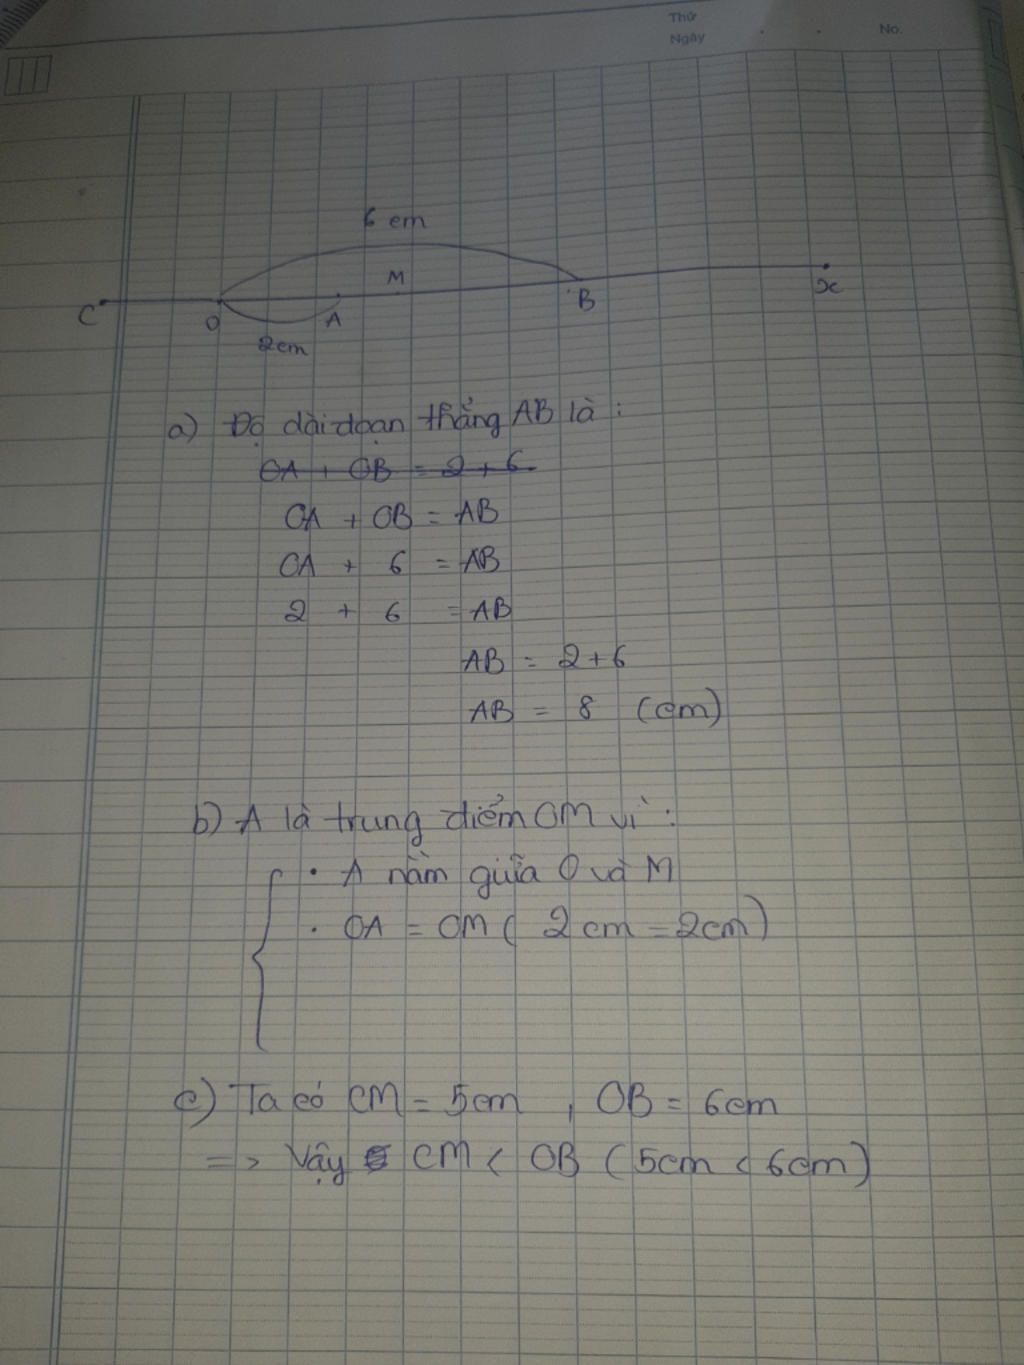 Thứ
Ngày
No.
6 cm
M
C
O
A
B
x
2cm
a) Độ dài đoạn thẳng AB là :
OA + OB = 2 + 6
OA + OB = AB
OA + 6 = AB
2 + 6 = AB
AB = 2+6
AB = 8 (cm)
b) A là trung điểm OM vì :
• A nằm giữa O và M
• OA = OM ( 2 cm = 2cm )
c) Ta có CM = 5cm , OB = 6cm
=> Vậy CM < OB ( 5cm < 6cm )